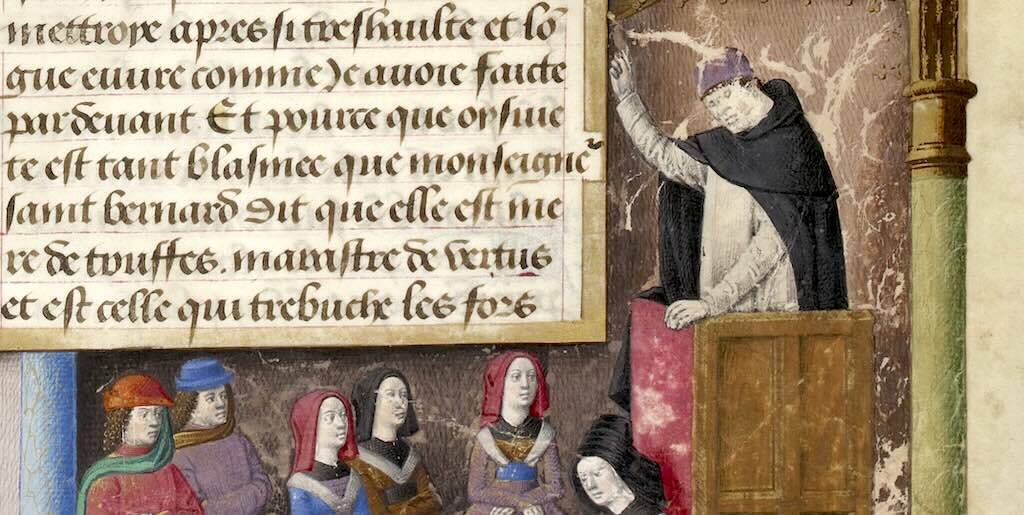 mettroye apres si treshaulte et lō
gue euure comme Je auoie faicte
par deuant Et pource que oysiue
te est tant blasmee que monseigñr
saint bernard dit que elle est me
re de touffes. marastre de vertus
et est celle qui trebuche les fors